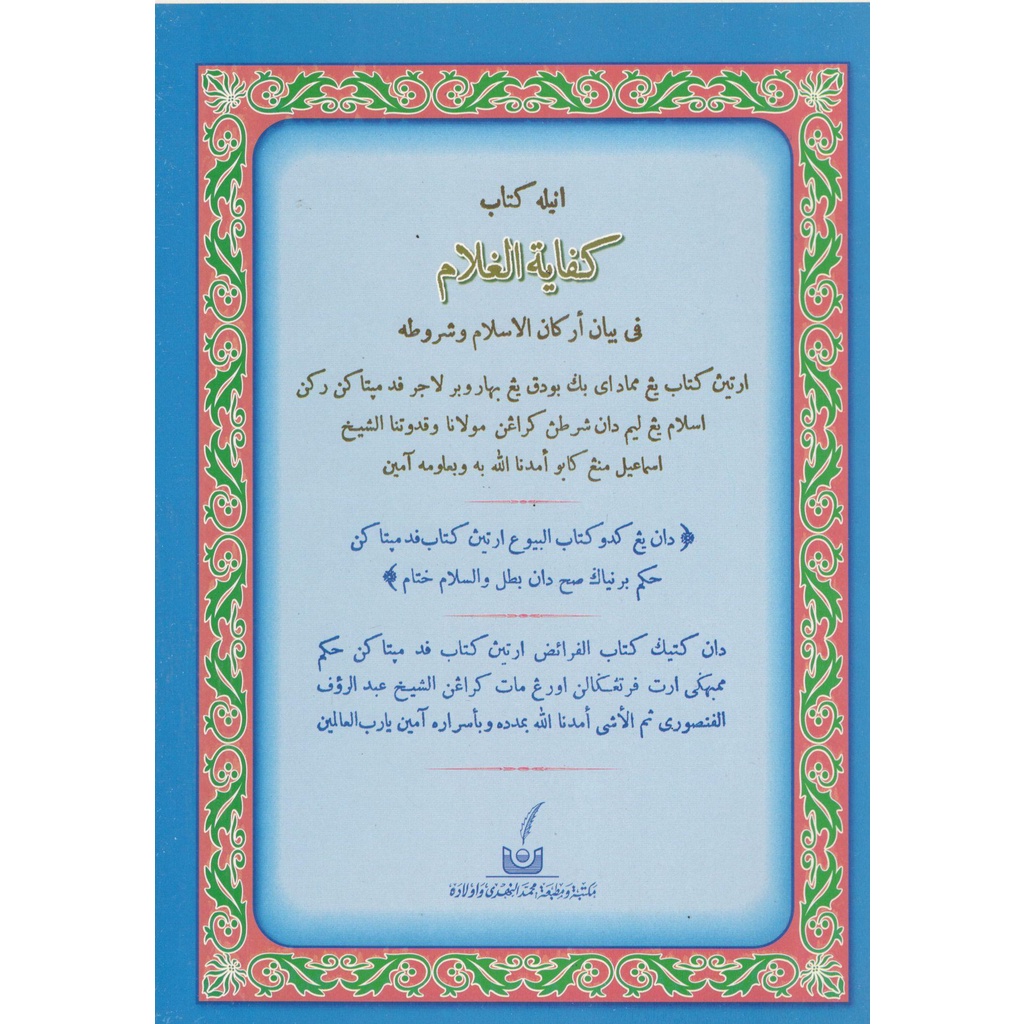 انيله كتاب
كفاية الغلام
فى بيان أركان الاسلام وشروطه
ارتين كتاب يڠ ممادای بݢ بودق يڠ بهارو بر لاجر فد مپتاکن رکن
اسلام يڠ ليم دان شرطن کراڠن مولانا وقدوتنا الشيخ
اسماعيل منڠ کابو أمدنا الله به وبعلومه آمين
﴿ دان يڠ کدو کتاب البيوع ارتين کتاب فد مپتاکن
حکم برنياݢ صح دان بطل والسلام ختام ﴾
دان کتيݢ کتاب الفرائض ارتين کتاب فد مپتاکن حکم
ممبهݢی ارت فرتڠݢالن اورڠ مات کراڠن الشيخ عبد الرؤف
الفنصوری ثم الأشی أمدنا الله بمدده وبأسراره آمين يارب العالمين
مكتبة ومطبعة محمد النهدى واولاده